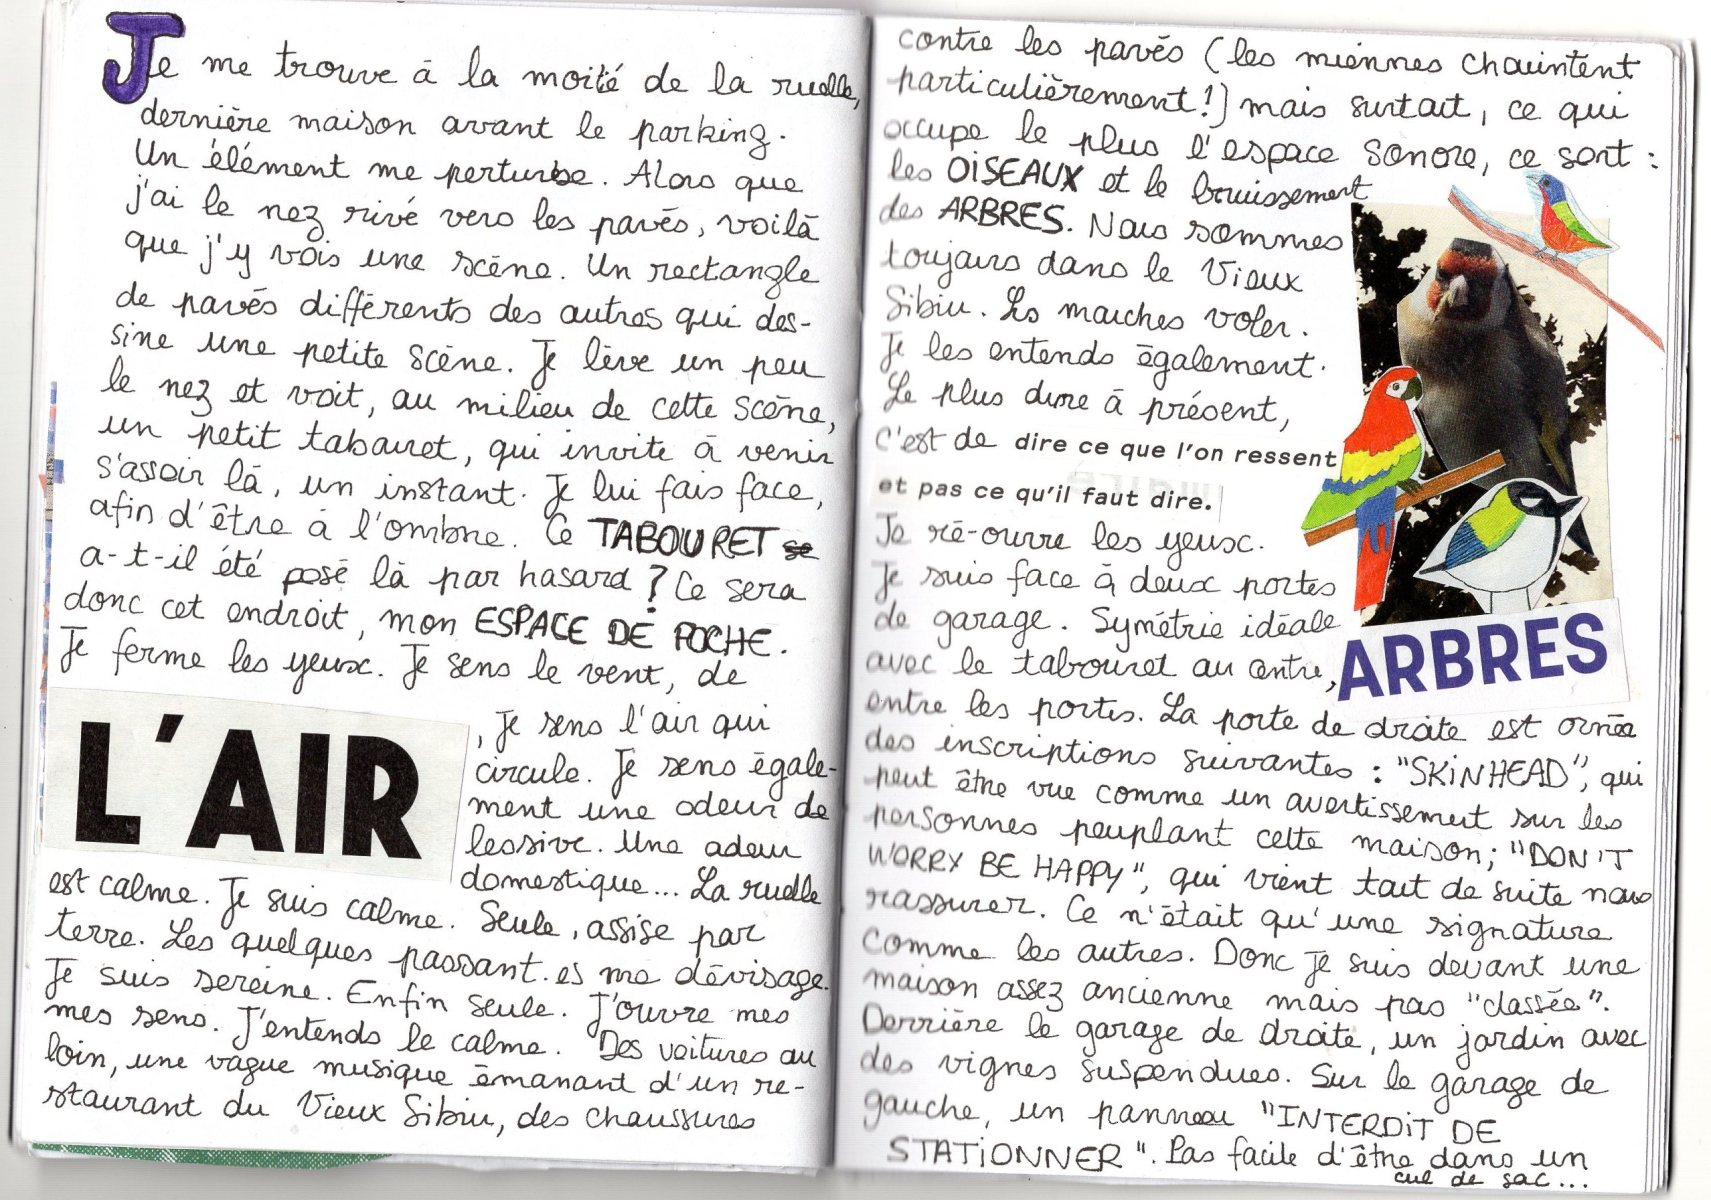 Je me trouve à la moité de la ruelle,
dernière maison avant le parking.
Un élément me perturbe. Alors que
j'ai le nez rivé vers les pavés, voilà
que j'y vois une scène. Un rectangle
de pavés différents des autres qui des-
sine une petite scène. Je lève un peu
le nez et voit, au milieu de cette scène,
un petit tabouret, qui invite à venir
s'assoir là, un instant. Je lui fais face,
afin d'être à l'ombre. Ce TABOURET se
a-t-il été posé là par hasard ? Ce sera
donc cet endroit, mon ESPACE DE POCHE.
Je ferme les yeux. Je sens le vent, de
L'AIR
, je sens l'air qui
circule. Je sens égale-
ment une odeur de
lessive. Une odeur
domestique... La ruelle
est calme. Je suis calme. Seule, assise par
terre. Les quelques passant.es me dévisage.
Je suis sereine. Enfin seule. J'ouvre mes
mes sens. J'entends le calme. Des voitures au
loin, une vague musique émanant d'un re-
staurant du Vieux Sibiu, des chaussures
contre les pavés (les miennes chouintent
particulièrement!) mais surtout, ce qui
occupe le plus l'espace sonore, ce sont :
les OISEAUX et le bruissement
des ARBRES. Nous sommes
toujours dans le Vieux
Sibiu. Les mouches voler.
Je les entends également.
Le plus dure à présent,
c'est de dire ce que l'on ressent
et pas ce qu'il faut dire.
Je ré-ouvre les yeux.
Je suis face à deux portes
de garage. Symétrie idéale
avec le tabouret au centre,
ARBRES
entre les portes. La porte de droite est ornée
des inscriptions suivantes : "SKINHEAD", qui
peut être vue comme un avertissement sur les
personnes peuplant cette maison; "DON'T
WORRY BE HAPPY", qui vient tout de suite nous
rassurer. Ce n'était qu'une signature
comme les autres. Donc je suis devant une
maison assez ancienne mais pas "classée".
Derrière le garage de droite, un jardin avec
des vignes suspendues. Sur le garage de
gauche, un panneau "INTERDIT DE
STATIONNER". Pas facile d'être dans un
cul de sac...